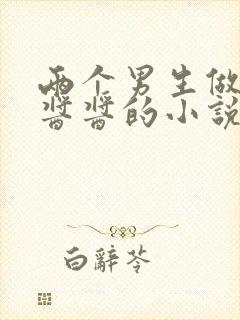 两个男生做
酱酱的小说
白辞苓